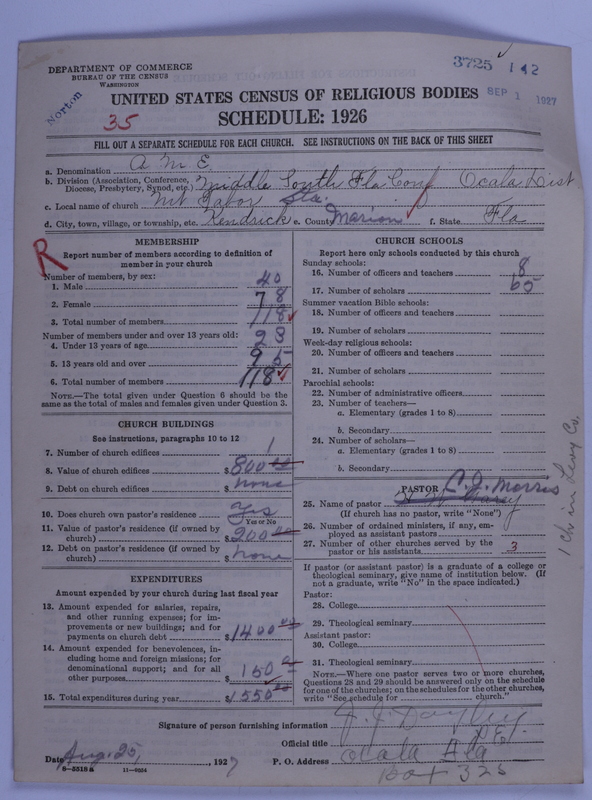 3725 142
DEPARTMENT OF COMMERCE
BUREAU OF THE CENSUS
WASHINGTON
Norton
SEP 1 1927
UNITED STATES CENSUS OF RELIGIOUS BODIES
35
SCHEDULE: 1926
FILL OUT A SEPARATE SCHEDULE FOR EACH CHURCH. SEE INSTRUCTIONS ON THE BACK OF THIS SHEET
a. Denomination A M E.
b. Division (Association, Conference, Diocese, Presbytery, Synod, etc.) Middle South Fla Conf Ocala Dist
c. Local name of church Mt Tabor Sta.
d. City, town, village, or township, etc. Kendrick e. County Marion f. State Fla
R
MEMBERSHIP
Report number of members according to definition of
member in your church
Number of members, by sex:
1. Male 40
2. Female 78
3. Total number of members 118
Number of members under and over 13 years old:
4. Under 13 years of age 23
5. 13 years old and over 95
6. Total number of members 118
NOTE.—The total given under Question 6 should be the
same as the total of males and females given under Question 3.
CHURCH BUILDINGS
See instructions, paragraphs 10 to 12
7. Number of church edifices 1
8. Value of church edifices $800.00
9. Debt on church edifices $ none
10. Does church own pastor's residence Yes
Yes or No
11. Value of pastor's residence (if owned by
church) $200.00
12. Debt on pastor's residence (if owned by
church) $ none
EXPENDITURES
Amount expended by your church during last fiscal year
13. Amount expended for salaries, repairs,
and other running expenses; for im-
provements or new buildings; and for
payments on church debt $1400.00
14. Amount expended for benevolences, in-
cluding home and foreign missions; for
denominational support; and for all
other purposes $150
15. Total expenditures during year $1550.00
CHURCH SCHOOLS
Report here only schools conducted by this church
Sunday schools:
16. Number of officers and teachers 8
17. Number of scholars 65
Summer vacation Bible schools:
18. Number of officers and teachers
19. Number of scholars
Week-day religious schools:
20. Number of officers and teachers
21. Number of scholars
Parochial schools:
22. Number of administrative officers
23. Number of teachers—
a. Elementary (grades 1 to 8)
b. Secondary
24. Number of scholars—
a. Elementary (grades 1 to 8)
b. Secondary
1 Ch in Levy Co.
PASTOR
25. Name of pastor C. J. Morris
(If church has no pastor, write "None")
26. Number of ordained ministers, if any, em-
ployed as assistant pastors
27. Number of other churches served by the
pastor or his assistants 3
If pastor (or assistant pastor) is a graduate of a college or
theological seminary, give name of institution below. (If
not a graduate, write "No" in the space indicated.)
Pastor:
28. College
29. Theological seminary
Assistant pastor:
30. College
31. Theological seminary
NOTE.—Where one pastor serves two or more churches,
Questions 28 and 29 should be answered only on the schedule
for one of the churches; on the schedules for the other churches,
write "See schedule for church."
Signature of person furnishing information
Official title
Date Aug. 25, 1927 P. O. Address Ocala Fla
8-5518a 11-6604
Box 325